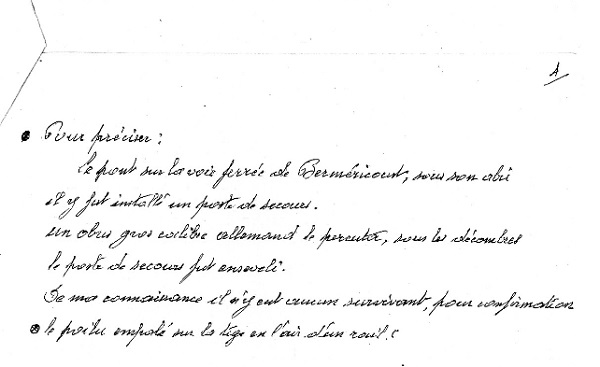 4
Pour préciser :
le pont sur la voie ferrée de Berméricourt, sous son abri
il y fut installé un poste de secours.
un obus gros calibre allemand le percuta, sous les décombres
le poste de secours fut enseveli.
De ma connaissance il n'y eut aucun survivant, pour confirmation
le poilu empalé sur la tige en l'air d'un rail.